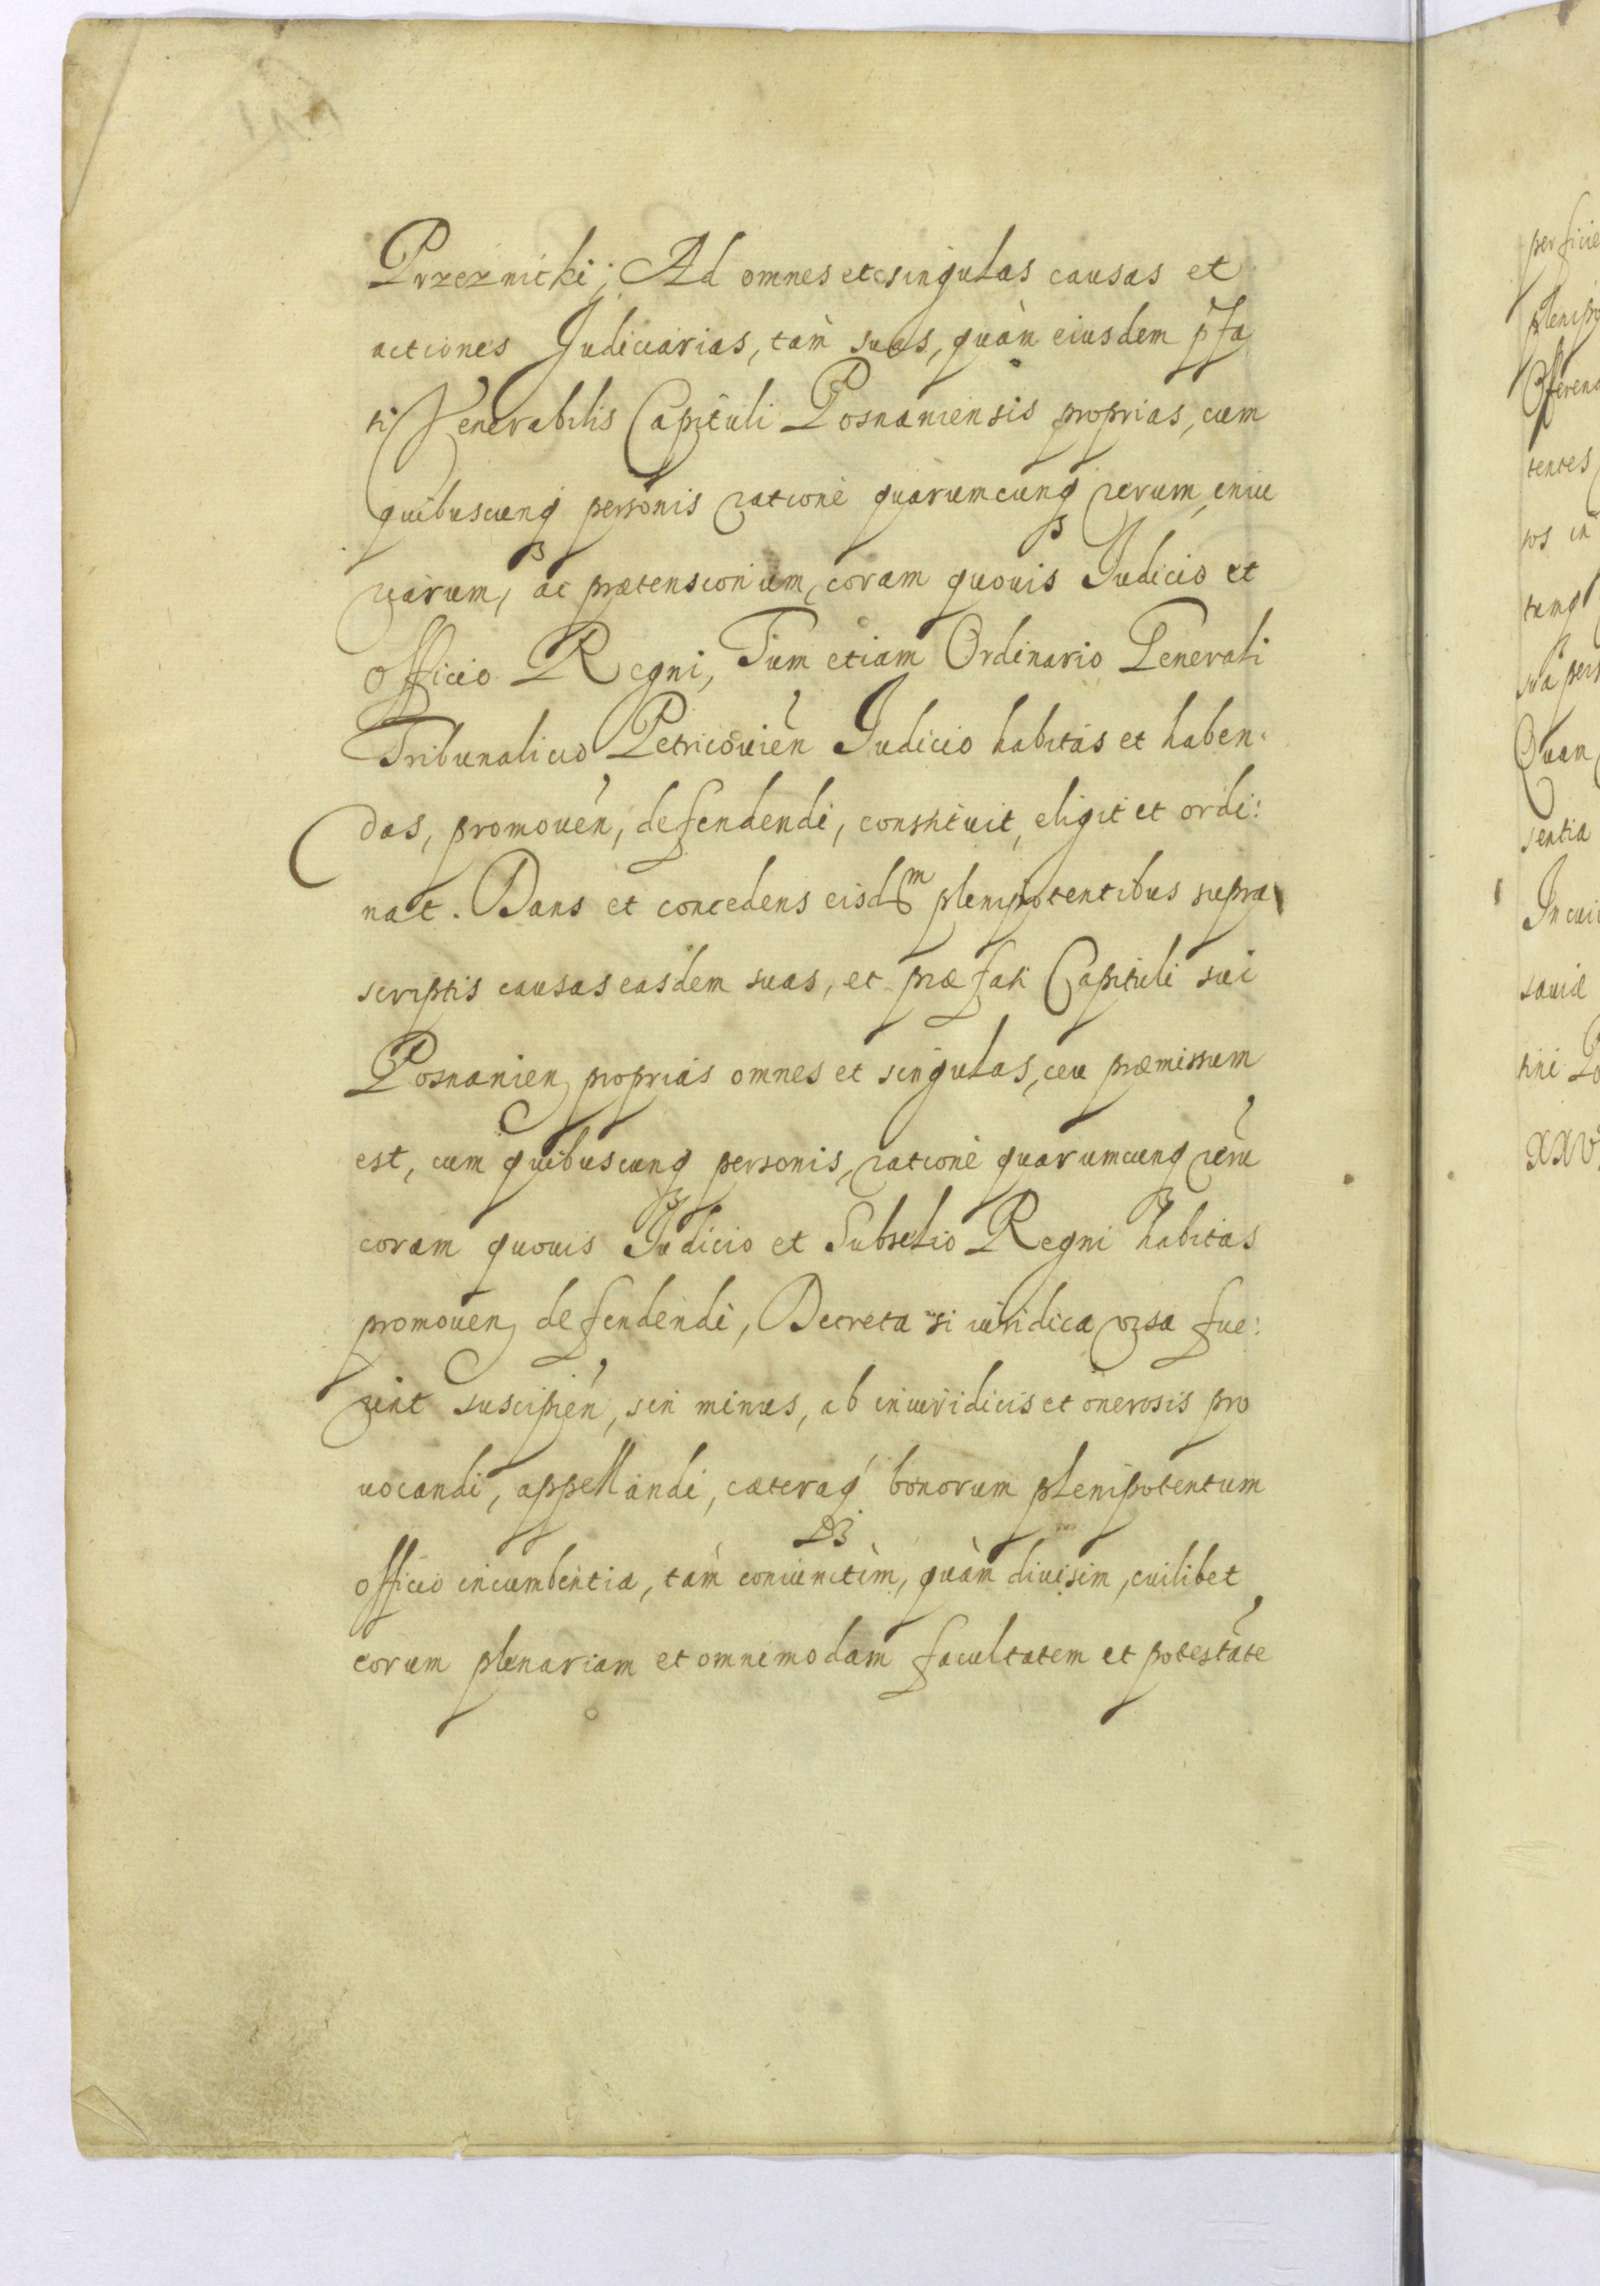 Przeznicki; Ad omnes et singulas causas et
actiones Judiciarias, tàm suas, quàm eiusdem pfa
ti Venerabilis Capituli Posnaniensis proprias, cum
quibuscunq personis ratione quarumcunq rerum, iniu
riarum, ac prætensionum, coram quouis Judicio et
officio Regni, Tum etiam Ordinario Generali
Tribunalicio Petricouien Judicio habitas et haben
das, promouen, defendendi, constituit, eligit et ordi:
nat. Dans et concedens eisdm plenipotentibus supra
scriptis causas easdem suas, et præfati Capituli sui
Posnanien proprias omnes et singulas, ceu præmissum
est, cum quibuscunq personis, ratione quarumcunq rerū
coram quouis Judicio et Subselio Regni habitas
promouen defendendi, Decreta si iuridica visa fue:
rint suscipien, sin minus, ab iniuridicis et onerosis pro
uocandi, appellandi, cæteraq bonorum plenipotentum
officio incumbentia, tàm coniunctìm, quàm diuisim, cuilibet
eorum plenariam et omnimodam facultatem et potestate
perficie
plenipo
tentes
sos in
tumq
sua pers
Quan
sentia
In cui
sauiæ
tini Po
XXV